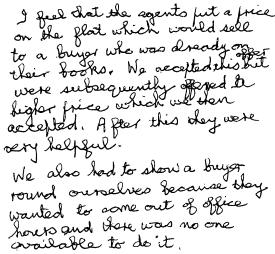 I feel that the agents put a price
on the flat which would sell
to a buyer who was already on
their books. We accepted this but
were subsequently offered a
higher price which we then
accepted. After this they were
very helpful.
We also had to show a buyer
round ourselves because they
wanted to come out of office
hours and there was no one
available to do it.